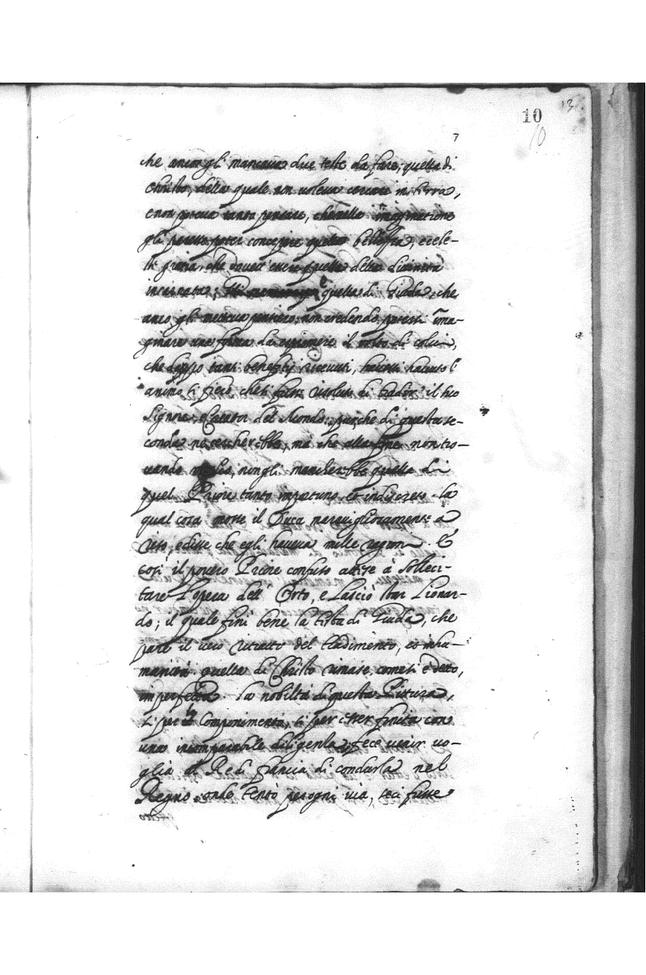 13
10
10
7
che anco gli mancava due teste da fare, quella di
Christo, della quale non voleva cercare in terra,
e non poteva tanto pensare, che nella imaginatione
gli potesse concepire quella bellezza, e cele-
ste gratia, che dovea essere quella della divinità
incarnata; quella di Giuda, che
anco gli metteva pensiero, non credendo potersi ima-
ginare una forma da esprimere il volto di colui,
che doppo tanti benefitij ricevuti, havesse havuto l'
animo si fiero, che si fusse risoluto di tradir il suo
Signore, e Creator del Mondo: purche di questa se-
conda ne cercherebbe, ma che alla fine non tro-
vando meglio, non gli mancherebbe quella di
quel Priore tanto importuno, et indiscreto. la
qual cosa mosse il Duca maravigliosamente a
riso, e disse che egli haveva mille ragioni. E
così il povero Priore confuso attese à solleci-
tare l'opera dell'Orto, e lasciò star Lionar-
do; il quale finì bene la testa di Giuda, che
pare il vero ritratto del tradimento, et inhu-
manità, quella di Christo rimase, come si è detto,
imperfetta. la nobiltà di questa Pittura,
si per il componimento, si per esser finita con
una incomparabile diligenza, fece venir vo-
glia al Re di Francia di condurla nel
Regno, onde tentò per ogni via, se ci fusse